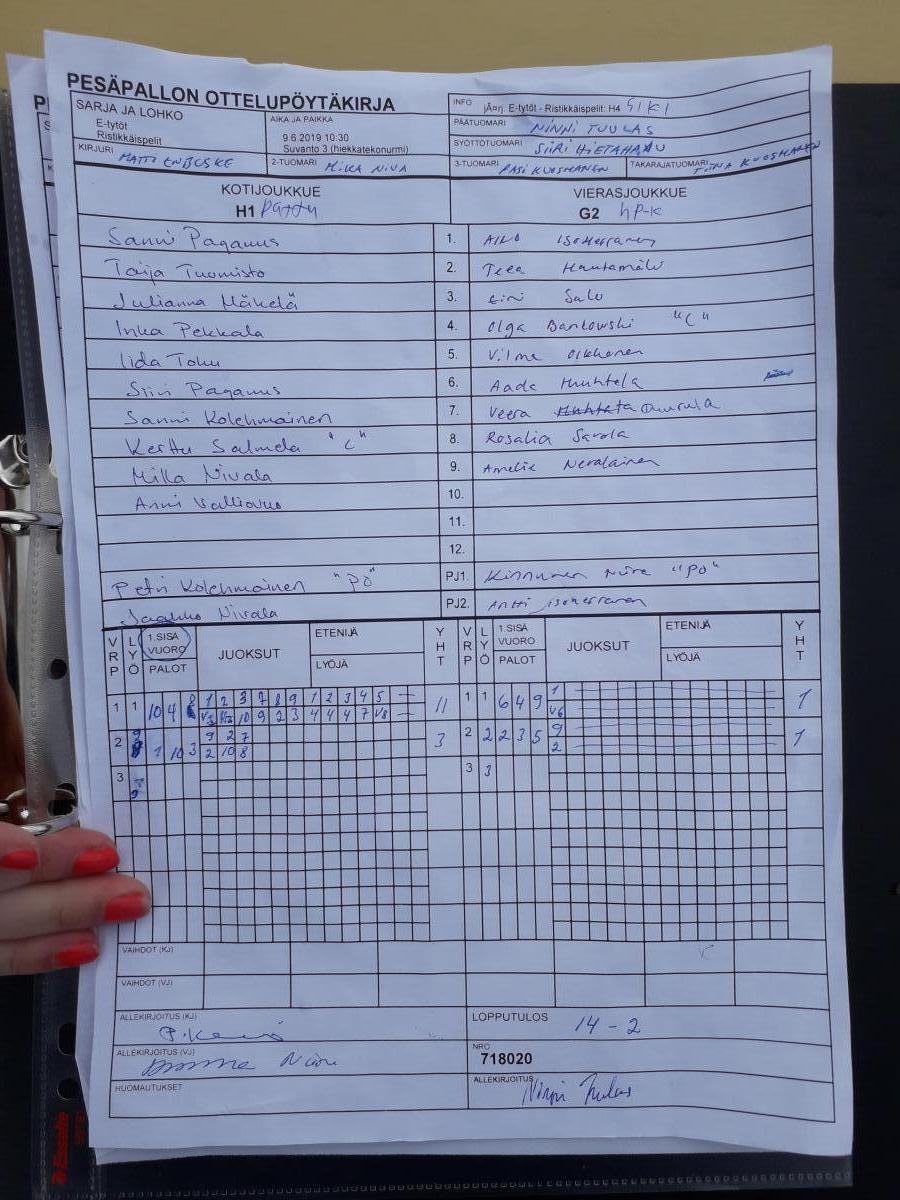 PESÄPALLON OTTELUPÖYTÄKIRJA
SARJA JA LOHKO
E-tytöt
Ristikkäispelit
AIKA JA PAIKKA
9.6.2019 10:30
Suvanto 3 (hiekkatekonurmi)
INFO
E-tytöt - Ristikkäispelit: H4
PÄÄTUOMARI NINNI TUULAS
SYÖTTÖTUOMARI SIIRI HIETAHARJU
KIRJURI MATTI ENBUSKE
2-TUOMARI MIKA NIVA
3-TUOMARI PASI KUOSMANEN
TAKARAJATUOMARI TIINA KUOSMANEN
KOTIJOUKKUE
H1 Pattu
VIERASJOUKKUE
G2 hp-k
Sanni Paganus 1. Aino Isoherranen
Taija Tuomisto 2. Teea Hautamäki
Julianna Mäkelä 3. Eini Salo
Inka Pekkala 4. Olga Bankowski "C"
Iida Toku 5. Vilma Oikkonen
Siiri Paganus 6. Aada Huhtela
Sanni Kolehmainen 7. Veera Ouurula
Kerttu Salmela "C" 8. Rosalia Savola
Milla Nivala 9. Amelie Nevalainen
Anni 10.
11.
12.
Petri Kolehmainen "PÖ" PJ1. Kinnunen Niina "PÖ"
Jaakko Nivala PJ2. Antti Isoherranen
VRP LYÖ 1.SISÄ VUORO PALOT JUOKSUT ETENIJÄ LYÖJÄ YHT VRP LYÖ 1.SISÄ VUORO PALOT JUOKSUT ETENIJÄ LYÖJÄ YHT
1 1 10 4 8 1 2 3 7 8 9 1 2 3 4 5 — 11 1 1 6 4 9 1 1
10 9 2 3 4 4 4 7 V8 — V6
2 9 1 10 3 9 2 7 3 2 2 2 3 5 9 1
2 10 8 2
3 3 3
VAIHDOT (KJ)
VAIHDOT (VJ)
ALLEKIRJOITUS (KJ)
LOPPUTULOS 14-2
ALLEKIRJOITUS (VJ)
NRO
718020
HUOMAUTUKSET
ALLEKIRJOITUS Ninni Tuulas
Esselte